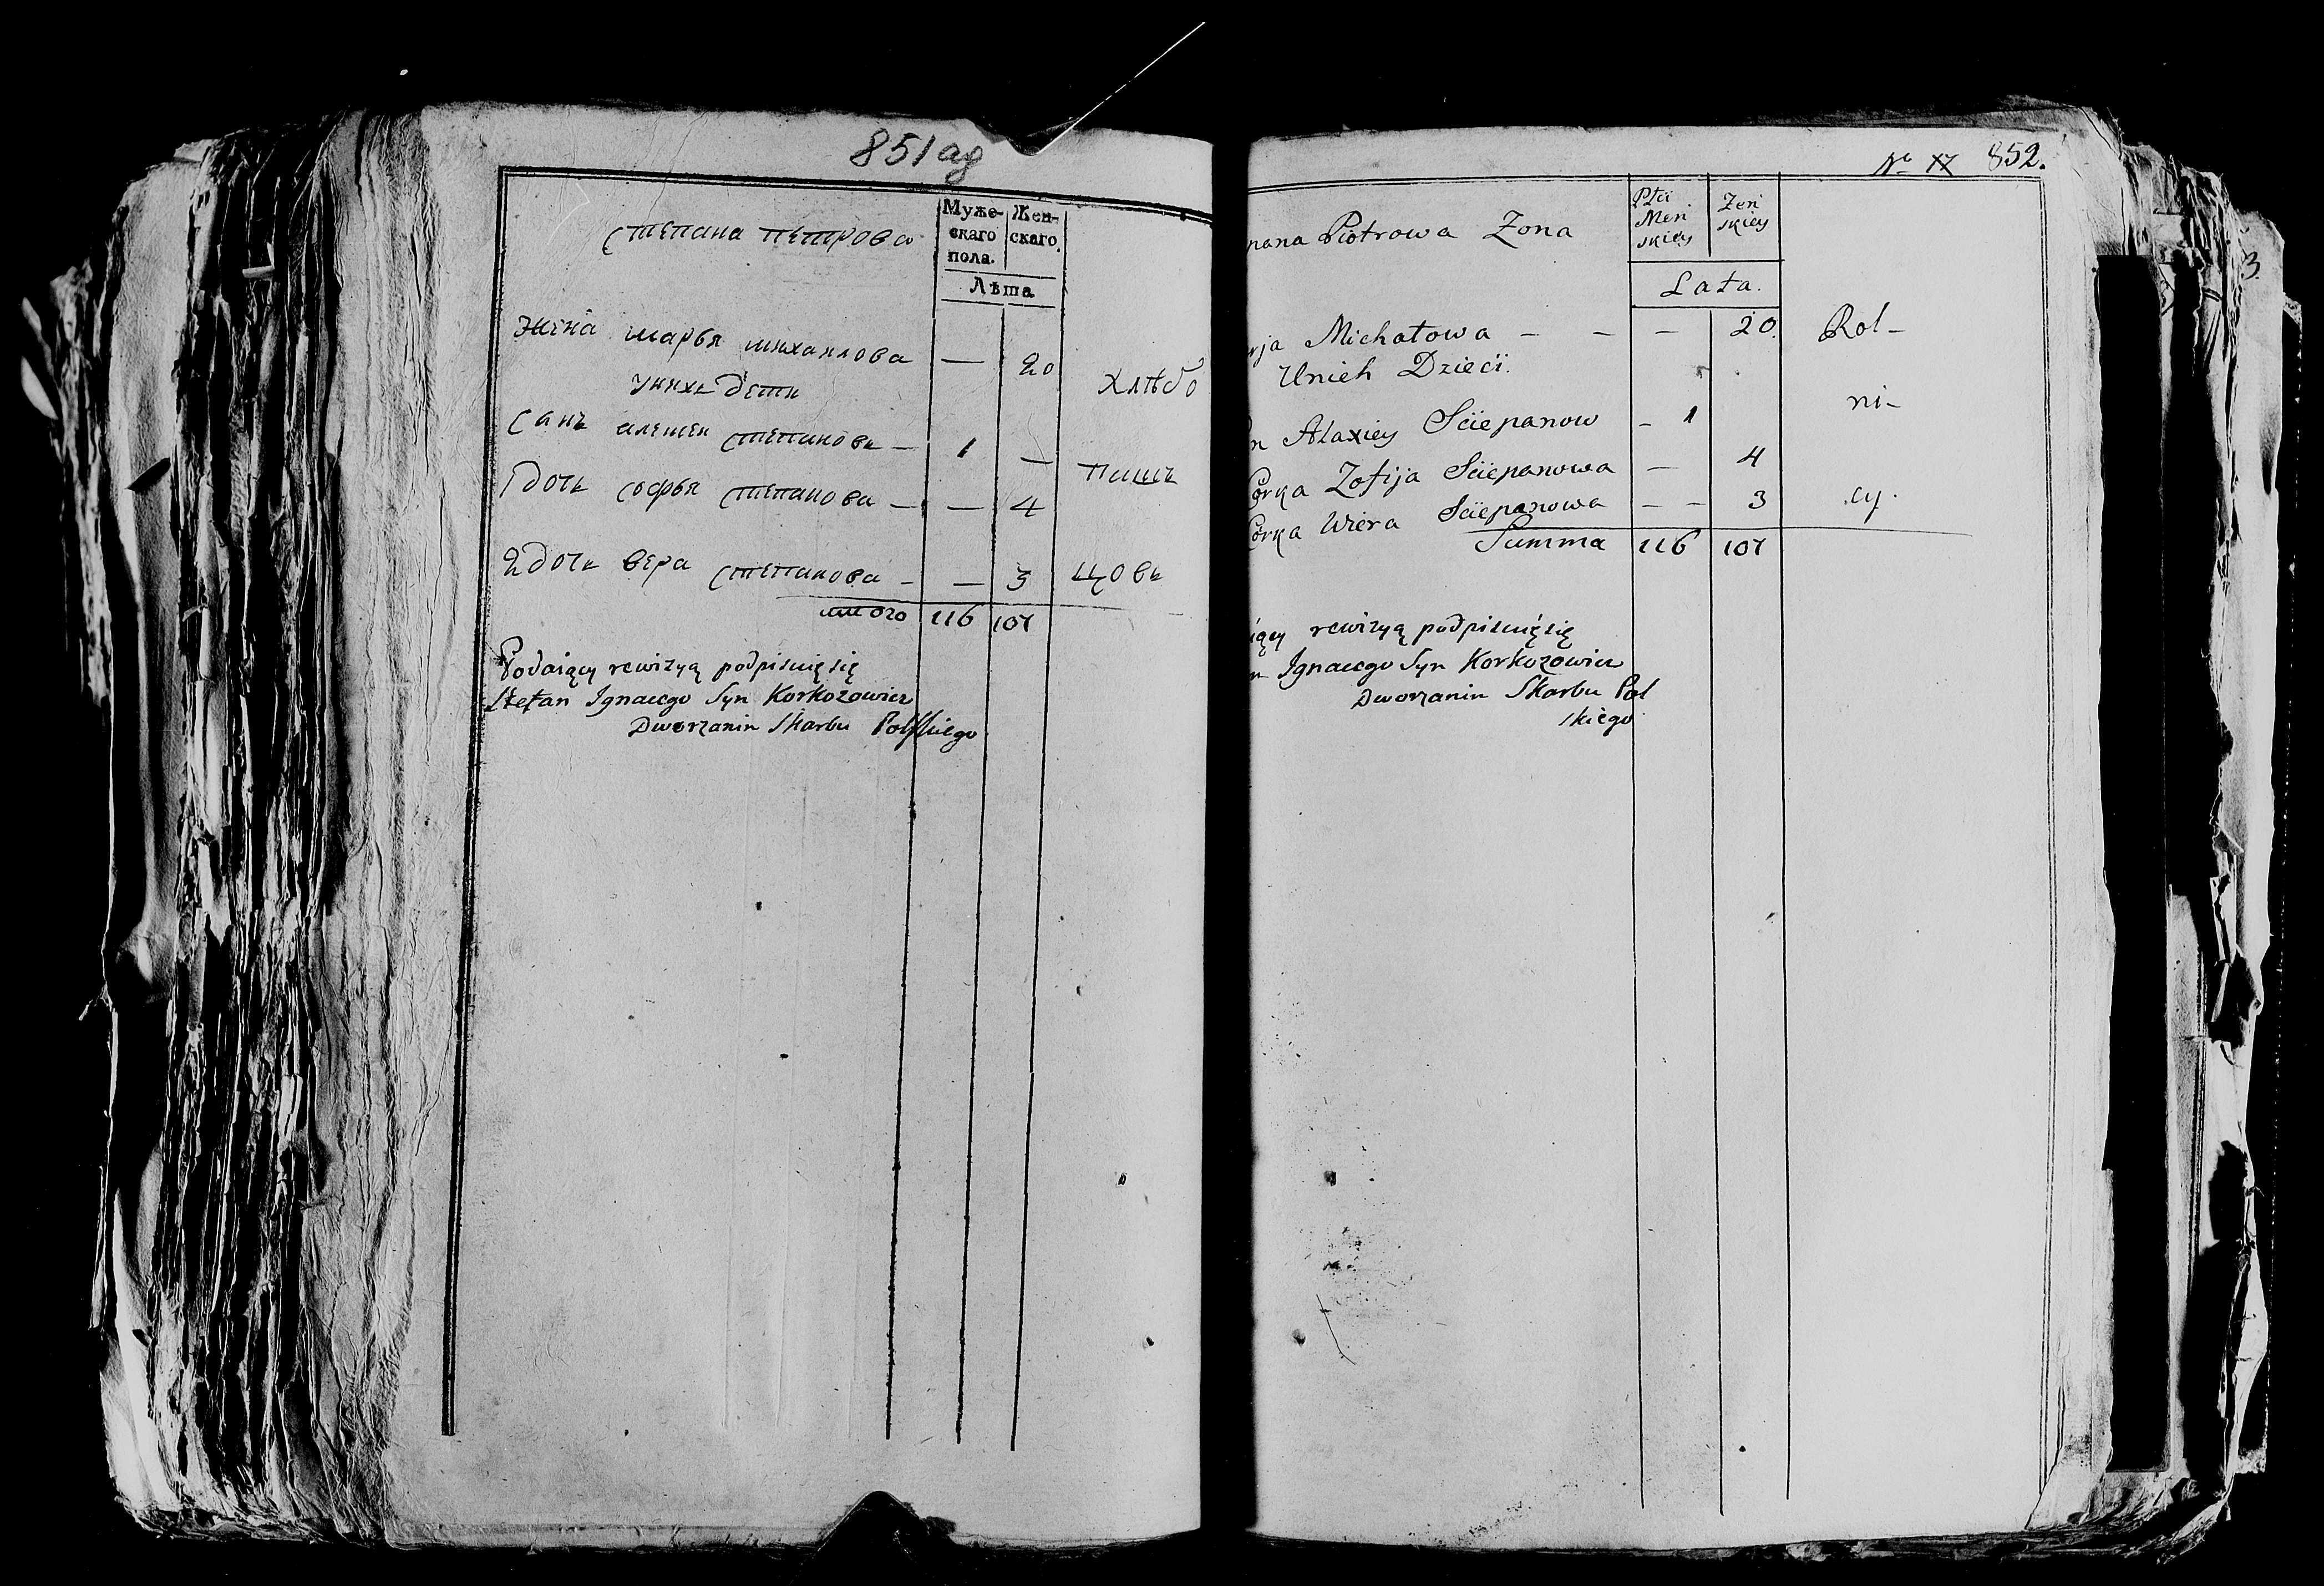 851 ag
Степана петрова
Муже-
скаго
пола.
Жен-
скаго.
Лѣта
жена марья михаилова — 20
унихъ дети
хлѣбо
Сынъ алексеи степановъ — 1 —
пашъ
1 дочь софья степанова — — 4
2 дочь вера степанова — — 3
цовъ
итого 116 107
Podaiący rewizyą podpisuię się
Stefan Ignacego Syn Korkozowicz
Dworzanin Skarbu Polskiego
№ 17 852.
pana Piotrowa Zona
Płci
Męn
skiey
Zeń
skiey
Lata.
rja Michałowa — — — 20.
Rol-
Unich Dzieci.
ni-
n Alaxiey Sciepanow — 1
Córka Zofija Sciepanowa — 4
Córka Wiera Sciepanowa — — 3
cy.
Summa 116 107
iący rewizyą podpisuię się
n Ignacego Syn Korkozowicz
Dworzanin Skarbu Pol
skiego
3.